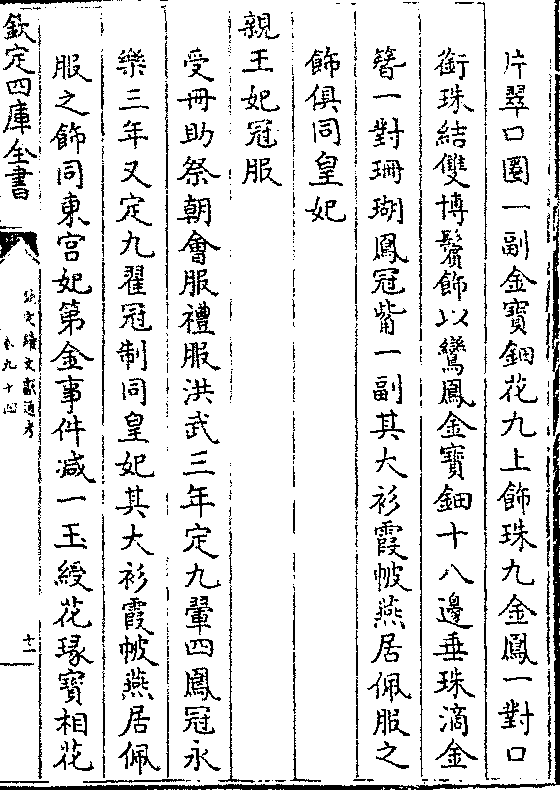 片翠口圈一副金寶鈿花九上飾珠九金鳳一對口
銜珠結雙博鬢飾以鸞鳳金寶鈿十八邊垂珠滴金
簪一對珊瑚鳳冠觜一副其大衫霞帔燕居佩服之
飾俱同皇妃
親王妃冠服
受冊助祭朝會服禮服洪武三年定九翬四鳳冠永
樂三年又定九翟冠制同皇妃其大衫霞帔燕居佩
服之飾同東宮妃第金事件減一玉綬花瑑寶相花
欽定四庫全書
欽定續文獻通考
卷九十四
十一